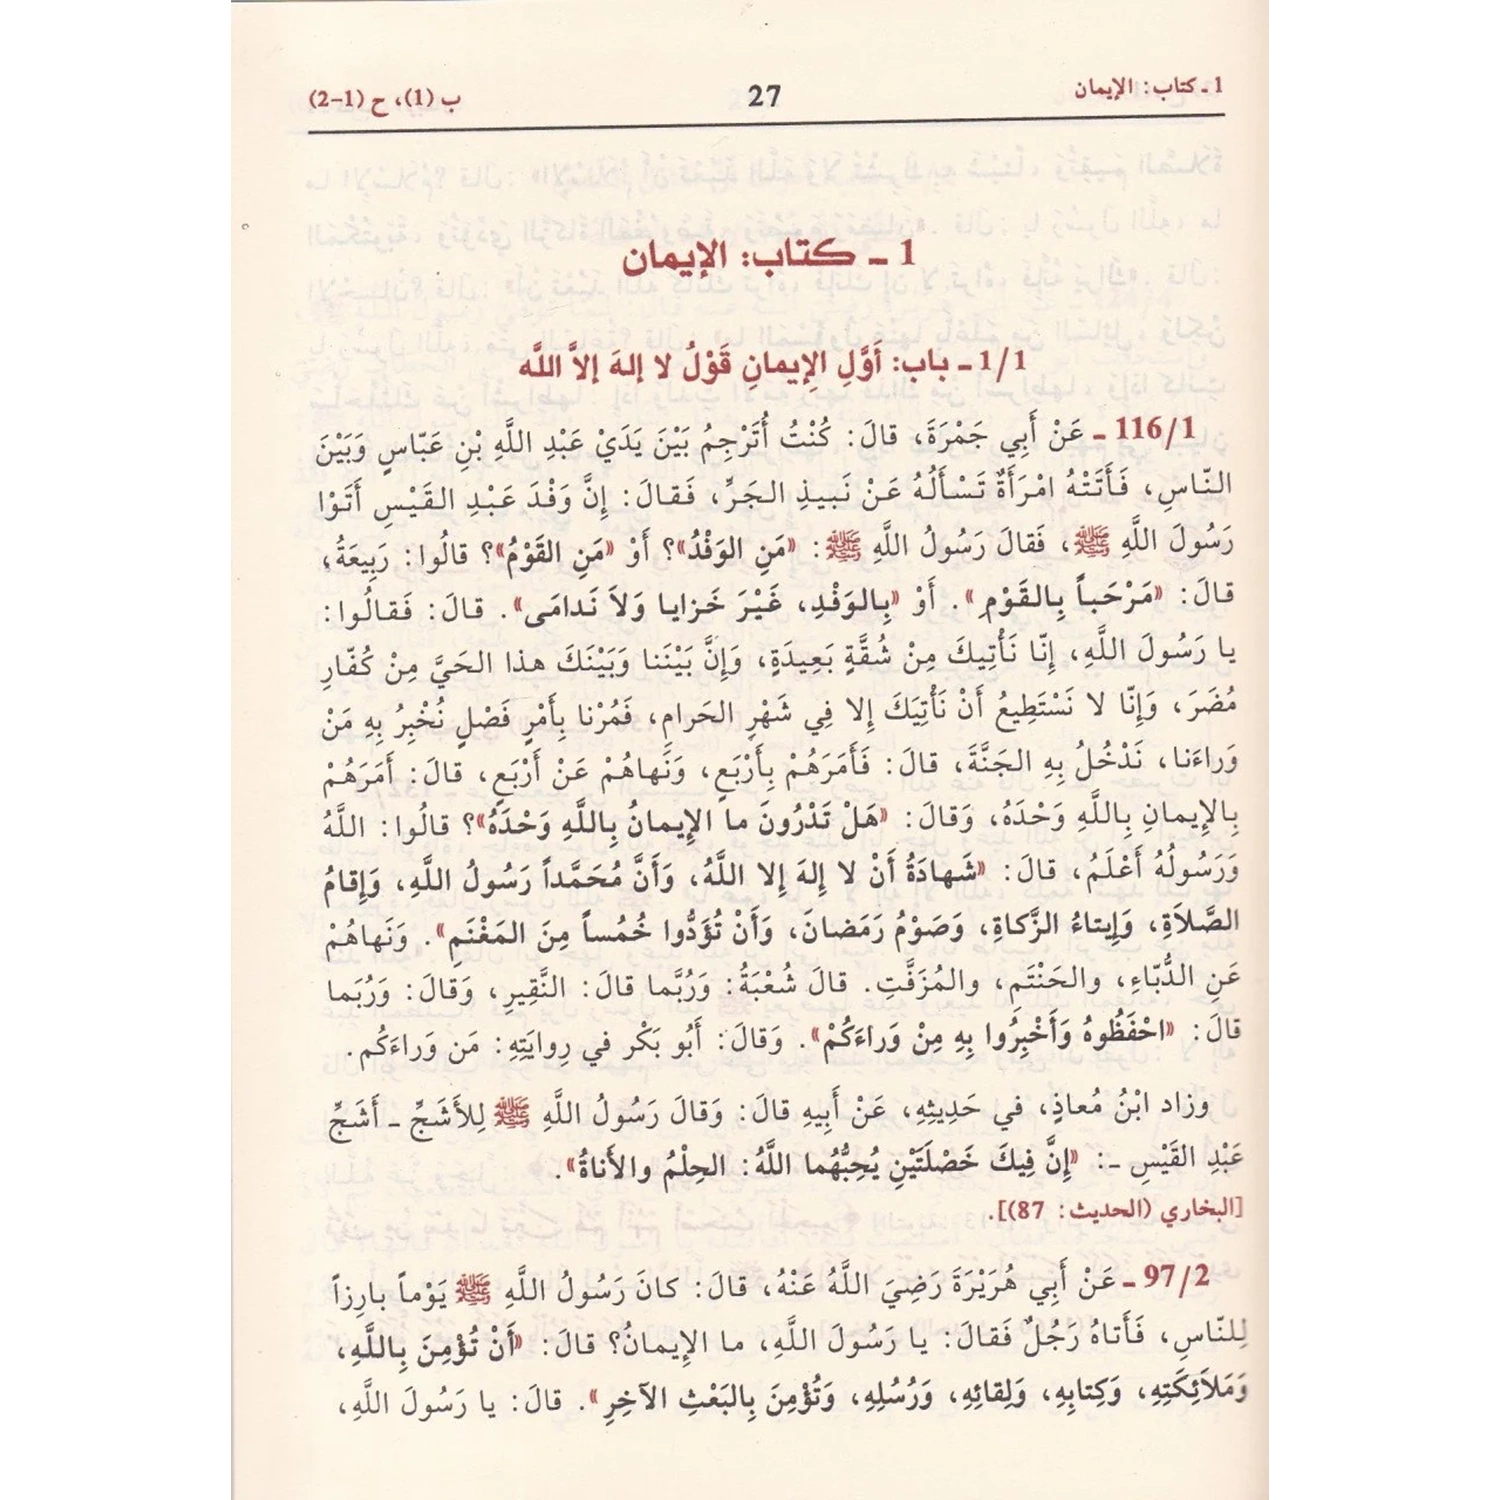 1 ـ كتاب: الإيمان
27
ب (1)، ح (1-2)
1 ـ كتاب: الإيمان
1/1 ـ باب: أَوَّلِ الإِيمانِ قَوْلُ لا إلهَ إلاَّ اللَّه
116/1 ـ عَنْ أَبِي جَمْرَةَ، قالَ: كُنْتُ أُتَرْجِمُ بَيْنَ يَدَيْ عَبْدِ اللَّهِ بْنِ عَبّاسٍ وَبَيْنَ
النّاسِ، فَأَتَتْهُ امْرَأَةٌ تَسْأَلُهُ عَنْ نَبِيذِ الجَرِّ، فَقالَ: إنَّ وَفْدَ عَبْدِ القَيْسِ أَتَوْا
رَسُولَ اللَّهِ ﷺ، فَقالَ رَسُولُ اللَّهِ ﷺ: «مَنِ الوَفْدُ»؟ أَوْ «مَنِ القَوْمُ»؟ قالُوا: رَبِيعَةُ،
قالَ: «مَرْحَباً بِالقَوْمِ». أَوْ «بِالوَفْدِ، غَيْرَ خَزايا وَلاَ نَدامَى». قالَ: فَقالُوا:
يا رَسُولَ اللَّهِ، إنّا نَأْتِيكَ مِنْ شُقَّةٍ بَعِيدَةٍ، وَإنَّ بَيْنَنا وَبَيْنَكَ هذا الحَيَّ مِنْ كُفّارِ
مُضَرَ، وَإنّا لا نَسْتَطِيعُ أَنْ نَأْتِيَكَ إلا فِي شَهْرِ الحَرامِ، فَمُرْنا بِأَمْرٍ فَصْلٍ نُخْبِرُ بِهِ مَنْ
وَراءَنا، نَدْخُلُ بِهِ الجَنَّةَ، قالَ: فَأَمَرَهُمْ بِأَرْبَعٍ، وَنَهاهُمْ عَنْ أَرْبَعٍ، قالَ: أَمَرَهُمْ
بِالإِيمانِ بِاللَّهِ وَحْدَهُ، وَقالَ: «هَلْ تَدْرُونَ ما الإِيمانُ بِاللَّهِ وَحْدَهُ»؟ قالُوا: اللَّهُ
وَرَسُولُهُ أَعْلَمُ، قالَ: «شَهادَةُ أَنْ لا إلهَ إلا اللَّهُ، وَأَنَّ مُحَمَّداً رَسُولُ اللَّهِ، وَإقامُ
الصَّلاَةِ، وَإيتاءُ الزَّكاةِ، وَصَوْمُ رَمَضانَ، وَأَنْ تُؤَدُّوا خُمُساً مِنَ المَغْنَمِ». وَنَهاهُمْ
عَنِ الدُّبّاءِ، والحَنْتَمِ، والمُزَفَّتِ. قالَ شُعْبَةُ: وَرُبَّما قالَ: النَّقِيرِ، وَقالَ: وَرُبَما
قالَ: «احْفَظُوهُ وَأَخْبِرُوا بِهِ مِنْ وَراءَكُمْ». وَقالَ: أَبُو بَكْر في رِوايَتِهِ: مَن وَراءَكُم.
وزاد ابْنُ مُعاذٍ، في حَدِيثِهِ، عَنْ أَبِيهِ قالَ: وَقالَ رَسُولُ اللَّهِ ﷺ لِلأَشَجِّ ـ أَشَجِّ
عَبْدِ القَيْسِ ـ: «إنَّ فِيكَ خَصْلَتَيْنِ يُحِبُّهُما اللَّهُ: الحِلْمُ والأَناةُ».
[البخاري (الحديث: 87)].
97/2 ـ عَنْ أَبِي هُرَيْرَةَ رَضِيَ اللَّهُ عَنْهُ، قالَ: كانَ رَسُولُ اللَّهِ ﷺ يَوْماً بارِزاً
لِلنّاسِ، فَأَتاهُ رَجُلٌ فَقالَ: يا رَسُولَ اللَّهِ، ما الإِيمانُ؟ قالَ: «أَنْ تُؤْمِنَ بِاللَّهِ،
وَمَلاَئِكَتِهِ، وَكِتابِهِ، وَلِقائِهِ، وَرُسُلِهِ، وَتُؤْمِنَ بِالبَعْثِ الآخِرِ». قالَ: يا رَسُولَ اللَّهِ،